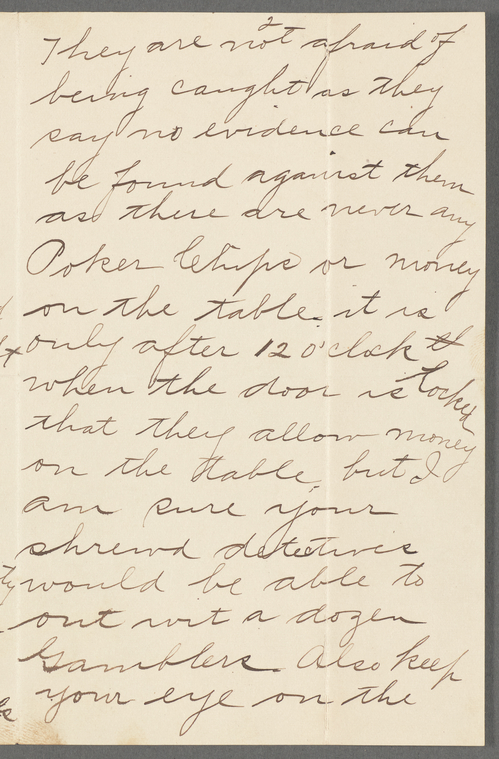 2
They are not afraid of
being caught as they
say no evidence can
be found against them
as there are never any
Poker Chips or money
on the table. it is
only after 12 o'clock
when the door is locked
that they allow money
on the table, but I
am sure your
shrewd detectives
would be able to
out wit a dozen
Gamblers. Also keep
your eye on the